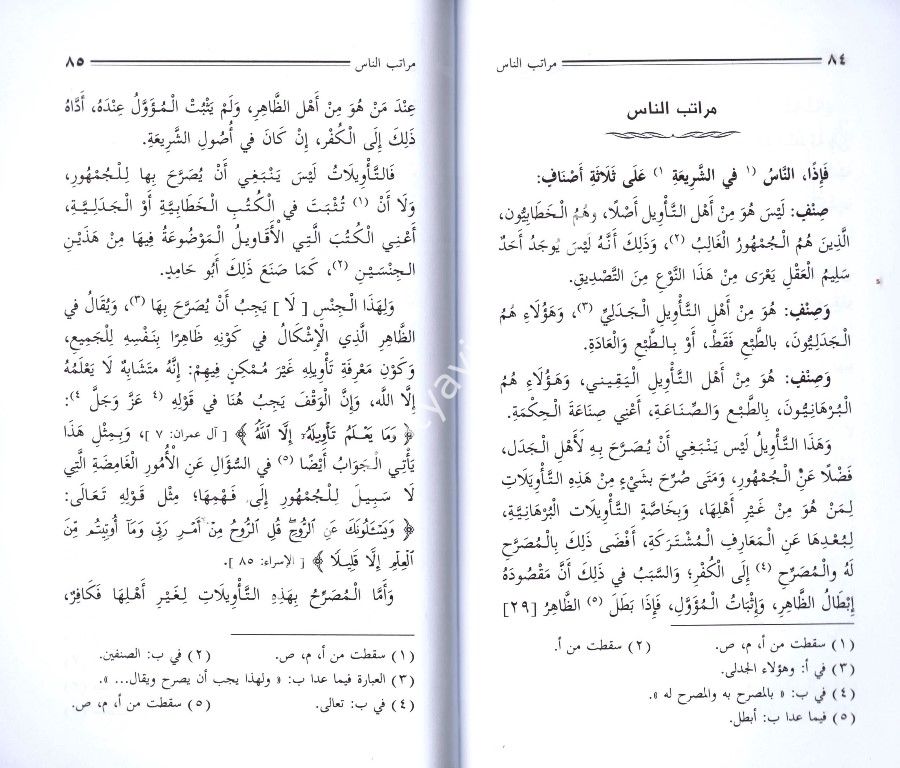 ٨٤ مراتب الناس
مراتب الناس
فَإِذًا، النَّاسُ (١ في الشَّرِيعَةِ ١) عَلَى ثَلَاثَةِ أَصْنَافٍ:
صِنْفٍ: لَيْسَ هُوَ مِنْ أَهْلِ التَّأْوِيلِ أَصْلًا، وهُمُ الْخَطَابِيُّون،
الَّذِينَ هُمُ الْجُمْهُورُ الْغَالِبُ (٢)، وَذَلِكَ أَنَّهُ لَيْسَ يُوجَدُ أَحَدٌ
سَلِيمُ الْعَقْلِ يَعْرَى مِنْ هَذَا النَّوْعِ مِنَ التَّصْدِيقِ.
وَصِنْفٍ: هُوَ مِنْ أَهْلِ التَّأْوِيلِ الْجَدَلِيِّ (٣)، وَهَؤُلَاءِ هُمُ
الْجَدَلِيُّونَ، بالطَّبْعِ فَقَطْ، أَوْ بِالطَّبْعِ وَالْعَادَةِ.
وَصِنْفٍ: هُوَ مِنْ أَهْلِ التَّأْوِيلِ الْيَقِيني، وَهَؤُلَاءِ هُمُ
الْبُرْهَانِيُّونَ، بِالطَّبْعِ وَالصِّنَاعَةِ، أَعْنِي صِنَاعَةَ الْحِكْمَةِ.
وَهَذَا التَّأْوِيلُ لَيْسَ يَنْبَغِي أَنْ يُصَرَّحَ بِهِ لِأَهْلِ الْجَدَلِ،
فَضْلًا عَنِ الْجُمْهُورِ، وَمَتَى صُرِّحَ بِشَيْءٍ مِنْ هَذِهِ التَّأْوِيلَاتِ
لِمَنْ هُوَ مِنْ غَيْرِ أَهْلِهَا، وَبِخَاصَّةِ التَّأْوِيلَاتِ الْبُرْهَانِيَّةِ،
لِبُعْدِهَا عَنِ الْمَعَارِفِ الْمُشْتَرَكَةِ، أَفْضَى ذَلِكَ بِالْمُصَرَّحِ
لَهُ والْمُصَرِّحِ (٤) إِلَى الْكُفْرِ؛ وَالسَّبَبُ في ذَلِكَ أَنَّ مَقْصُودَهُ
إِبْطَالُ الظَّاهِرِ، وَإِثْبَاتُ الْمُؤَوَّلِ، فَإِذَا بَطَلَ (٥) الظَّاهِرُ [٢٩]
(١) سقطت من أ، م، ص. (٢) سقطت من أ.
(٣) في أ: وهؤلاء الجدلى.
(٤) في ب: « بالمصرح به والمصرح له ».
(٥) فيما عدا ب: أبطل.
مراتب الناس ٨٥
عِنْدَ مَنْ هُوَ مِنْ أَهْلِ الظَّاهِرِ، وَلَمْ يَثْبُتْ الْمُؤَوَّلُ عِنْدَهُ، أَدَّاهُ
ذَلِكَ إِلَى الْكُفْرِ، إِنْ كَانَ في أُصُولِ الشَّرِيعَةِ.
فَالتَّأْوِيلَاتُ لَيْسَ يَنْبَغِي أَنْ يُصَرَّحَ بِها لِلْجُمْهُورِ،
وَلَا أَنْ (١) تُثْبَتَ في الْكُتُبِ الْخَطَابِيَّةِ أَوْ الْجَدَلِيَّةِ،
أَعْنِي الْكُتُبَ الَّتِي الْأَقَاوِيلُ الْمَوْضُوعَةُ فِيهَا مِنْ هَذَيْنِ
الْجِنْسَيْنِ (٢)، كَمَا صَنَعَ ذَلِكَ أَبُو حَامِدٍ.
وَلِهَذَا الْجِنْسِ [ لَا ] يَجِبُ أَنْ يُصَرَّحَ بِهَا (٣)، وَيُقَالُ في
الظَّاهِرِ الَّذِي الْإِشْكَالُ في كَوْنِهِ ظَاهِرًا بِنَفْسِهِ لِلْجَمِيعِ،
وَكَوْنِ مَعْرِفَةِ تَأْوِيلِهِ غَيْرَ مُمْكِنٍ فِيهِمْ: إِنَّهُ مُتَشَابِهٌ لَا يَعْلَمُهُ
إِلَّا اللَّه، وَإِنَّ الْوَقْفَ يَجِبُ هُنَا في قَوْلِهِ (٤ عَزَّ وَجَلَّ ٤):
﴿ وَمَا يَعْلَمُ تَأْوِيلَهُۥٓ إِلَّا ٱللَّهُ ﴾ [ آل عمران: ٧ ]، وَبِمِثْلِ هَذَا
يَأْتِي الْجَوَابُ أَيْضًا (٥) في السُّؤَالِ عَنِ الْأُمُورِ الْغَامِضَةِ الَّتِي
لَا سَبِيلَ لِلْجُمْهُورِ إِلَى فَهْمِهَا؛ مِثْلِ قَوْلِهِ تَعَالَى:
﴿ وَيَسْـَٔلُونَكَ عَنِ ٱلرُّوحِ ۖ قُلِ ٱلرُّوحُ مِنْ أَمْرِ رَبِّى وَمَآ أُوتِيتُم مِّنَ
ٱلْعِلْمِ إِلَّا قَلِيلًا ﴾ [ الإسراء: ٨٥ ].
وَأَمَّا الْمُصَرِّحُ بِهَذِهِ التَّأْوِيلَاتِ لِغَيْرِ أَهْلِهَا فَكَافِرٌ،
(١) سقطت من أ، م، ص. (٢) في ب: الصنفين.
(٣) العبارة فيما عدا ب: « ولهذا يجب أن يصرح ويقال... ».
(٤) في ب: تعالى. (٥) سقطت من أ، م، ص.